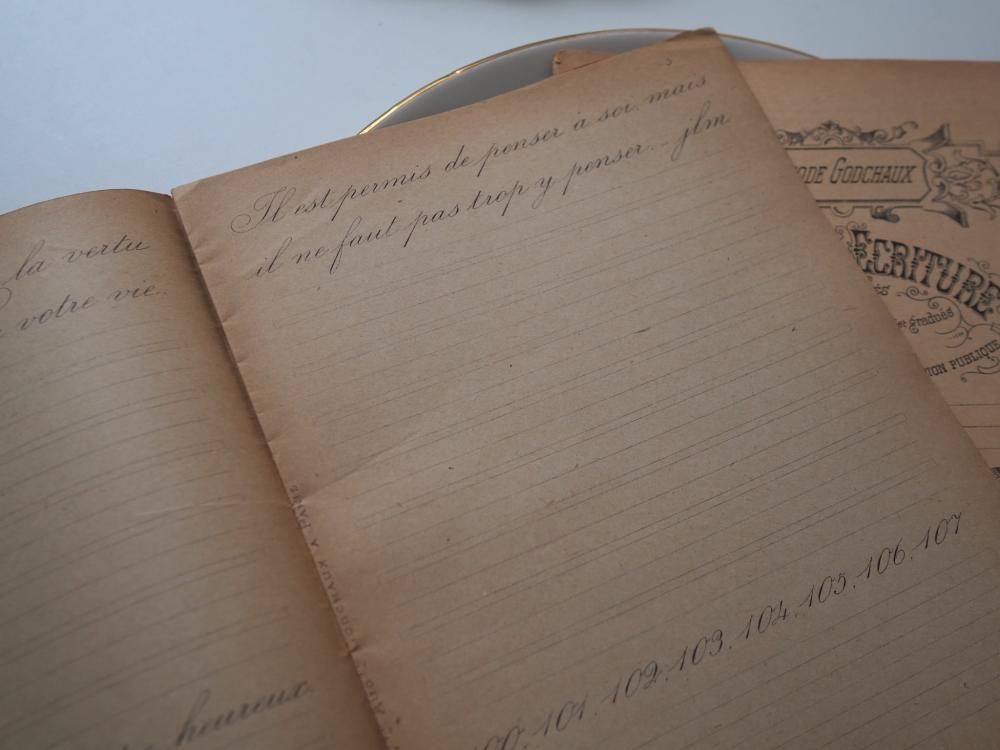 la vertu
votre vie.
heureux.
Il est permis de penser à soi, mais
il ne faut pas trop y penser._ jlm
101. 102. 103. 104. 105. 106. 107
GODCHAUX A PARIS
ODE GODCHAUX
ECRITURE
et gradués
ION PUBLIQUE